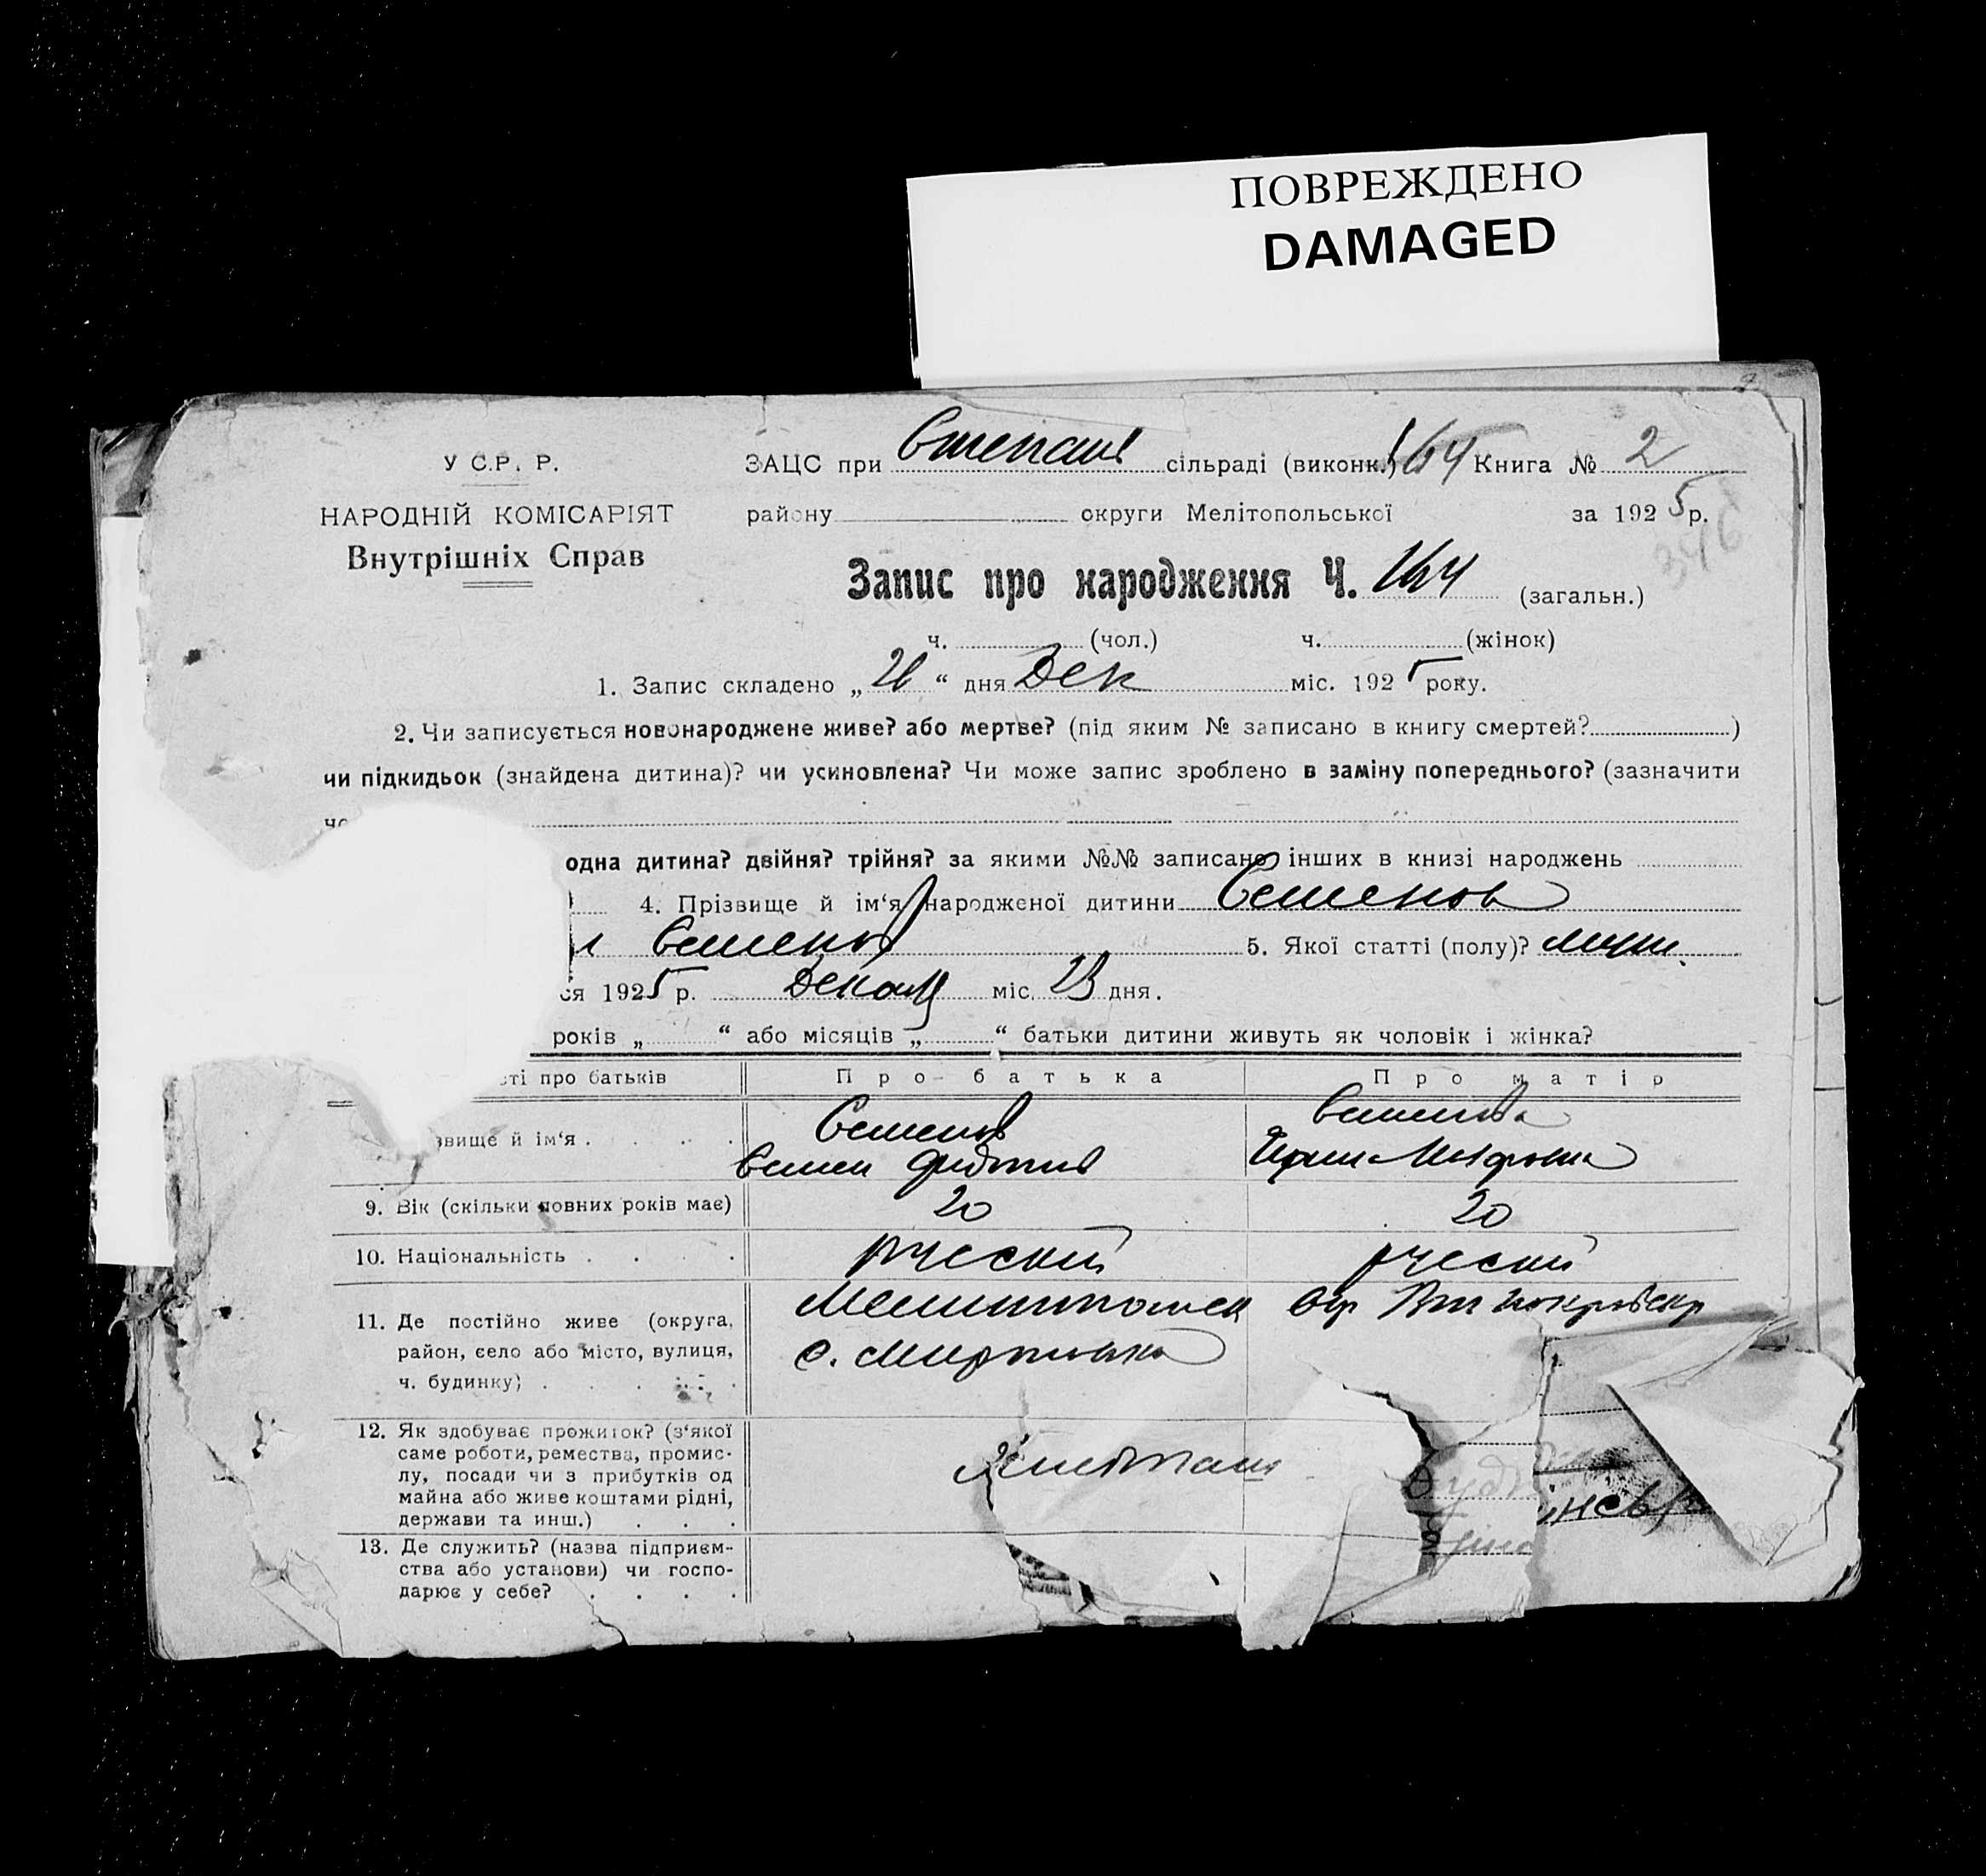 ПОВРЕЖДЕНО
DAMAGED
У С.Р. Р.
НАРОДНІЙ КОМІСАРІЯТ
Внутрішніх Справ
ЗАЦС при сільраді (виконк.) 164 Книга № 2
району округи Мелітопольської за 1925 р.
346
Запис про народження Ч. 164 (загальн.)
ч. (чол.) ч. (жінок)
1. Запис складено „ “ дня Дек міс. 1925 року.
2. Чи записується новонароджене живе? або мертве? (під яким № записано в книгу смертей? )
чи підкидьок (знайдена дитина)? чи усиновлена? Чи може запис зроблено в заміну попереднього? (зазначити
одна дитина? двійня? трійня? за якими №№ записано інших в книзі народжень
4. Прізвище й ім‘я народженої дитини Семенов
Семенов 5. Якої статті (полу)? муж.
ся 1925 р. Декабр міс. 23 дня.
років „ “ або місяців „ “ батьки дитини живуть як чоловік і жінка?
сті про батьків Про батька Про матір
звище й ім‘я . Семенов Семенова
Семен
9. Вік (скільки повних років має) 20 20
10. Національність . руский руский
11. Де постійно живе (округа, Мелитополск окр
район, село або місто, вулиця, с.
ч. будинку) .
12. Як здобуває прожиток? (з‘якої
саме роботи, ремества, промис-
лу, посади чи з прибутків од
майна або живе коштами рідні,
держави та инш.) .
13. Де служить? (назва підприєм-
ства або установи) чи госпо-
дарює у себе? .